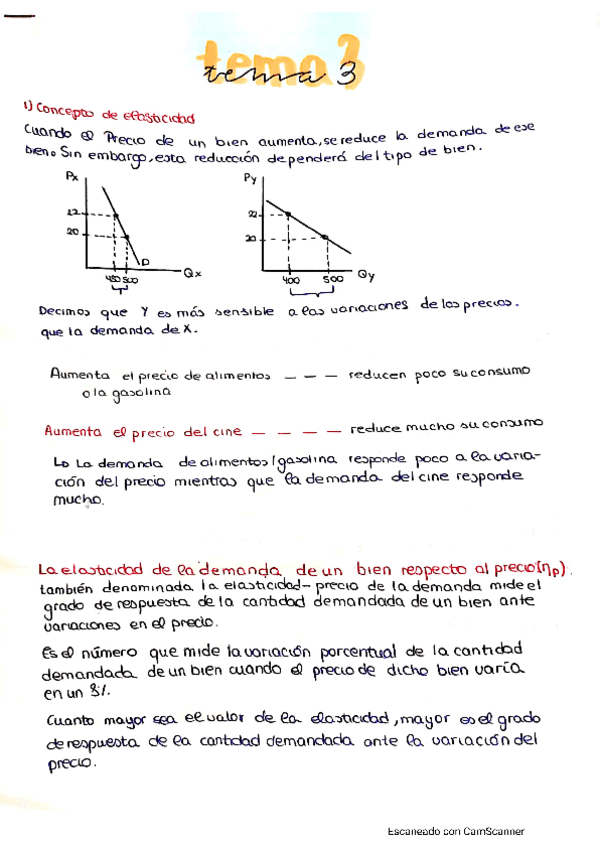 tema 3
tema 3
1) Concepto de elasticidad
Cuando el Precio de un bien aumenta, se reduce la demanda de ese
bien. Sin embargo, esta reducción dependerá del tipo de bien.
Px
22
20
D
450 500
Qx
Py
22
20
400 500
Qy
Decimos que Y es más sensible a las variaciones de los precios.
que la demanda de X.
Aumenta el precio de alimentos - - - reducen poco su consumo
o la gasolina
Aumenta el precio del cine - - - - reduce mucho su consumo
↳ La demanda de alimentos/gasolina responde poco a la varia-
ción del precio mientras que la demanda del cine responde
mucho.
La elasticidad de la demanda de un bien respecto al precio (ηp).
también denominada la elasticidad-precio de la demanda mide el
grado de respuesta de la cantidad demandada de un bien ante
variaciones en el precio.
Es el número que mide la variación porcentual de la cantidad
demandada de un bien cuando el precio de dicho bien varía
en un %.
Cuanto mayor sea el valor de la elasticidad, mayor es el grado
de respuesta de la cantidad demandada ante la variación del
precio.
Escaneado con CamScanner